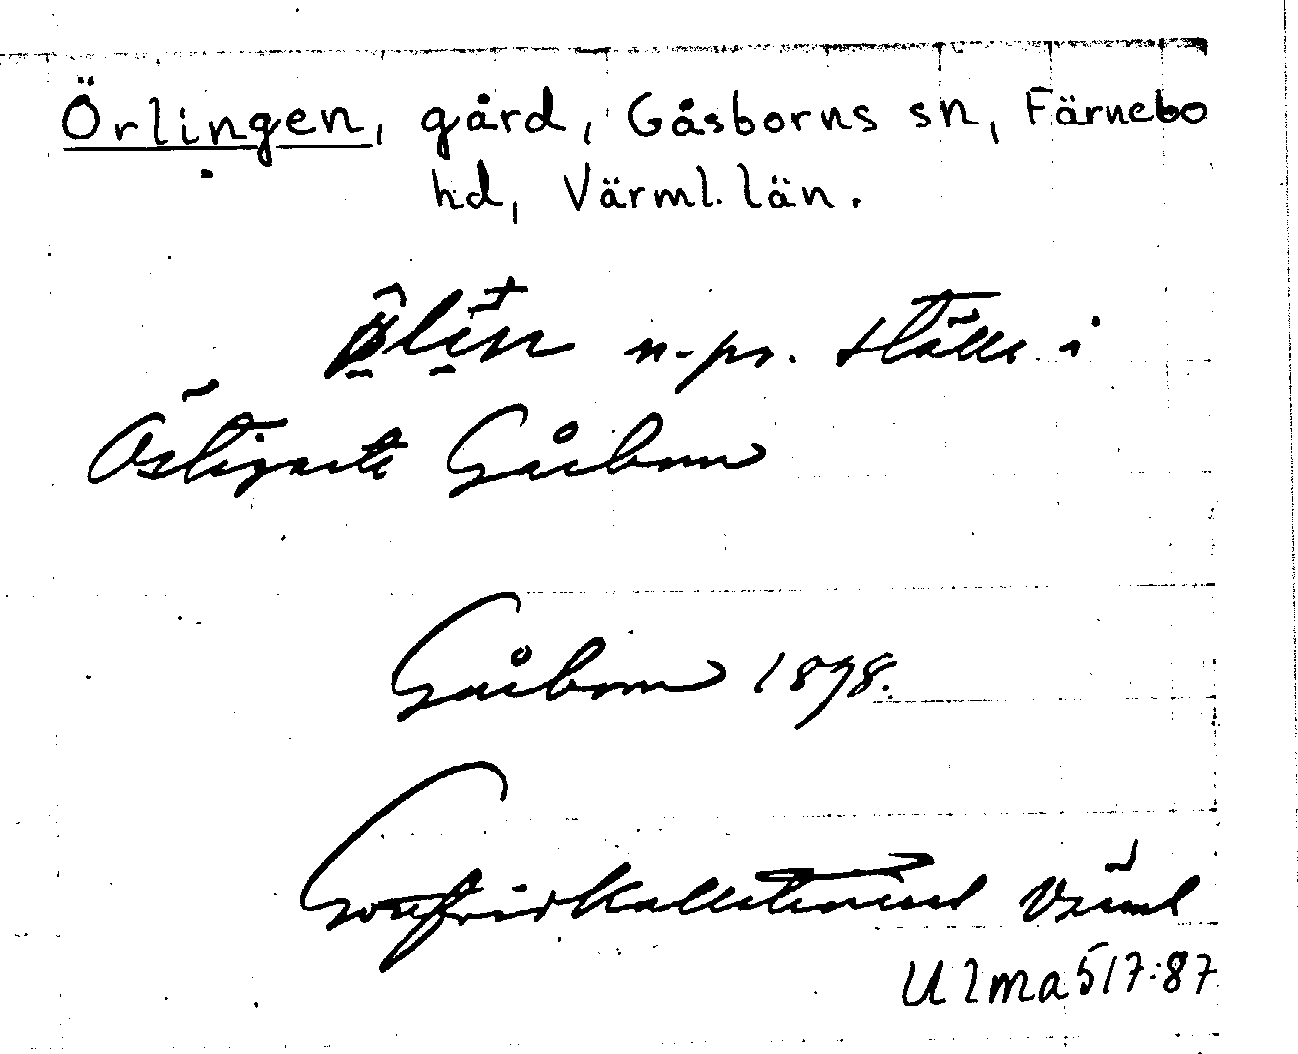 Örlingen, gård, Gåsborns sn, Färnebo
hd, Värml. län.
n. pr. ställe i
Östligaste Gåsborn
Gåsborn 1898.
Gottfrid Kallstenius Värml
Ulma 517:87